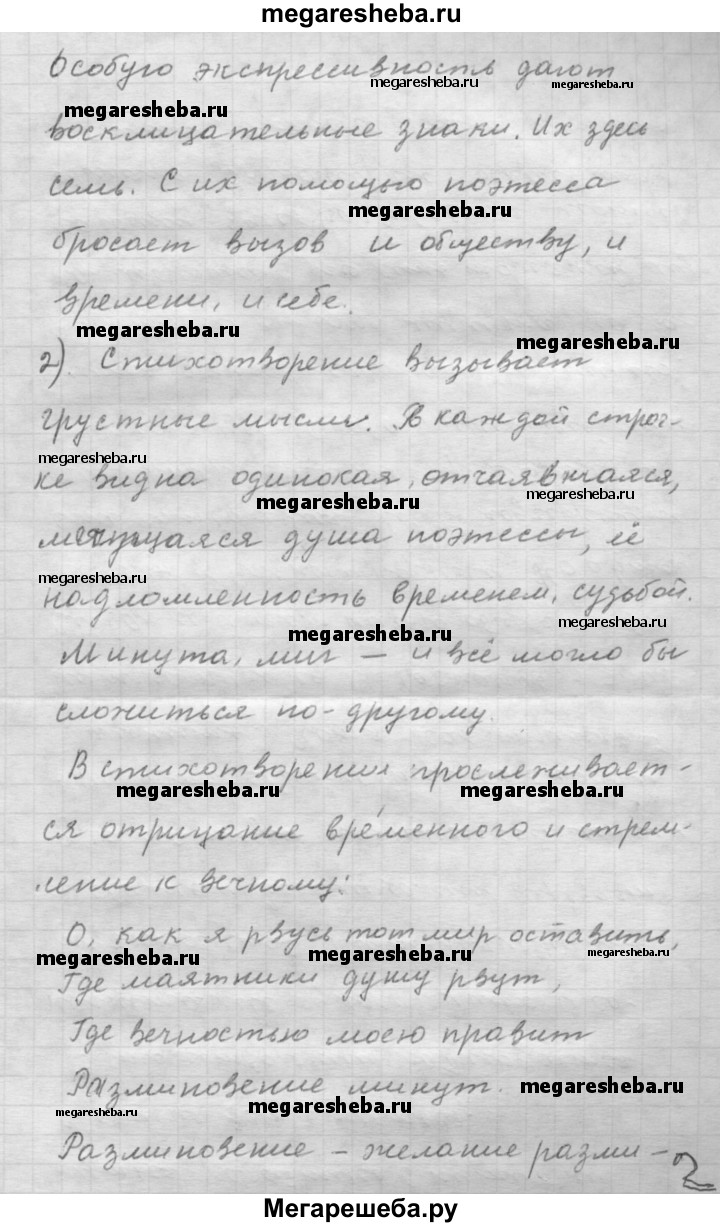 megaresheba.ru
Особую экспрессивность дают
megaresheba.ru megaresheba.ru
megaresheba.ru
восклицательные знаки. Их здесь
семь. С их помощью поэтесса
megaresheba.ru
бросает вызов и обществу, и
времени, и себе.
megaresheba.ru megaresheba.ru
2). Стихотворение вызывает
грустные мысли. В каждой строч-
megaresheba.ru
ке видна одинокая, отчаявшаяся,
megaresheba.ru megaresheba.ru
мятущаяся душа поэтессы, её
megaresheba.ru
надломленность временем, судьбой.
megaresheba.ru megaresheba.ru
Минута, миг – и всё могло бы
сложиться по-другому.
В стихотворении прослеживает-
megaresheba.ru megaresheba.ru
ся отрицание вре́менного и стрем-
ление к вечному:
О, как я рвусь тот мир оставить,
megaresheba.ru megaresheba.ru megaresheba.ru
Где маятники душу рвут,
Где вечностью моею правит
Разминовение минут.
megaresheba.ru
megaresheba.ru megaresheba.ru
Разминовение – желание разми-
2
Мегарешеба.ру